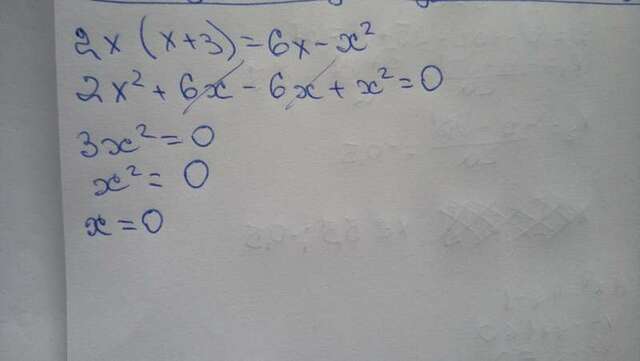 2x (x+3)=6x-x²
2x²+6x-6x+x²=0
3x²=0
x²=0
x=0